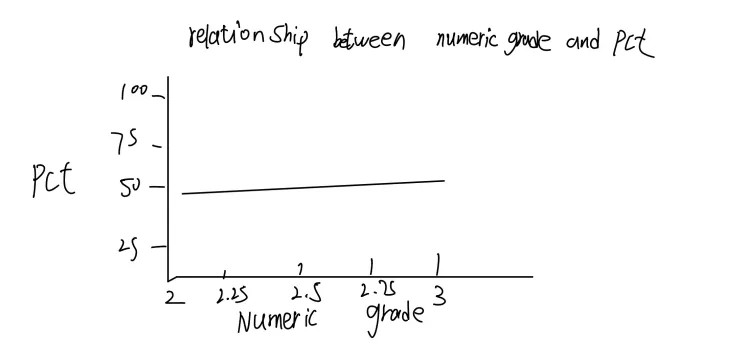 relationship between numeric grade and Pct
100
75
Pct
50
25
2 2.25 2.5 2.75 3
Numeric grade